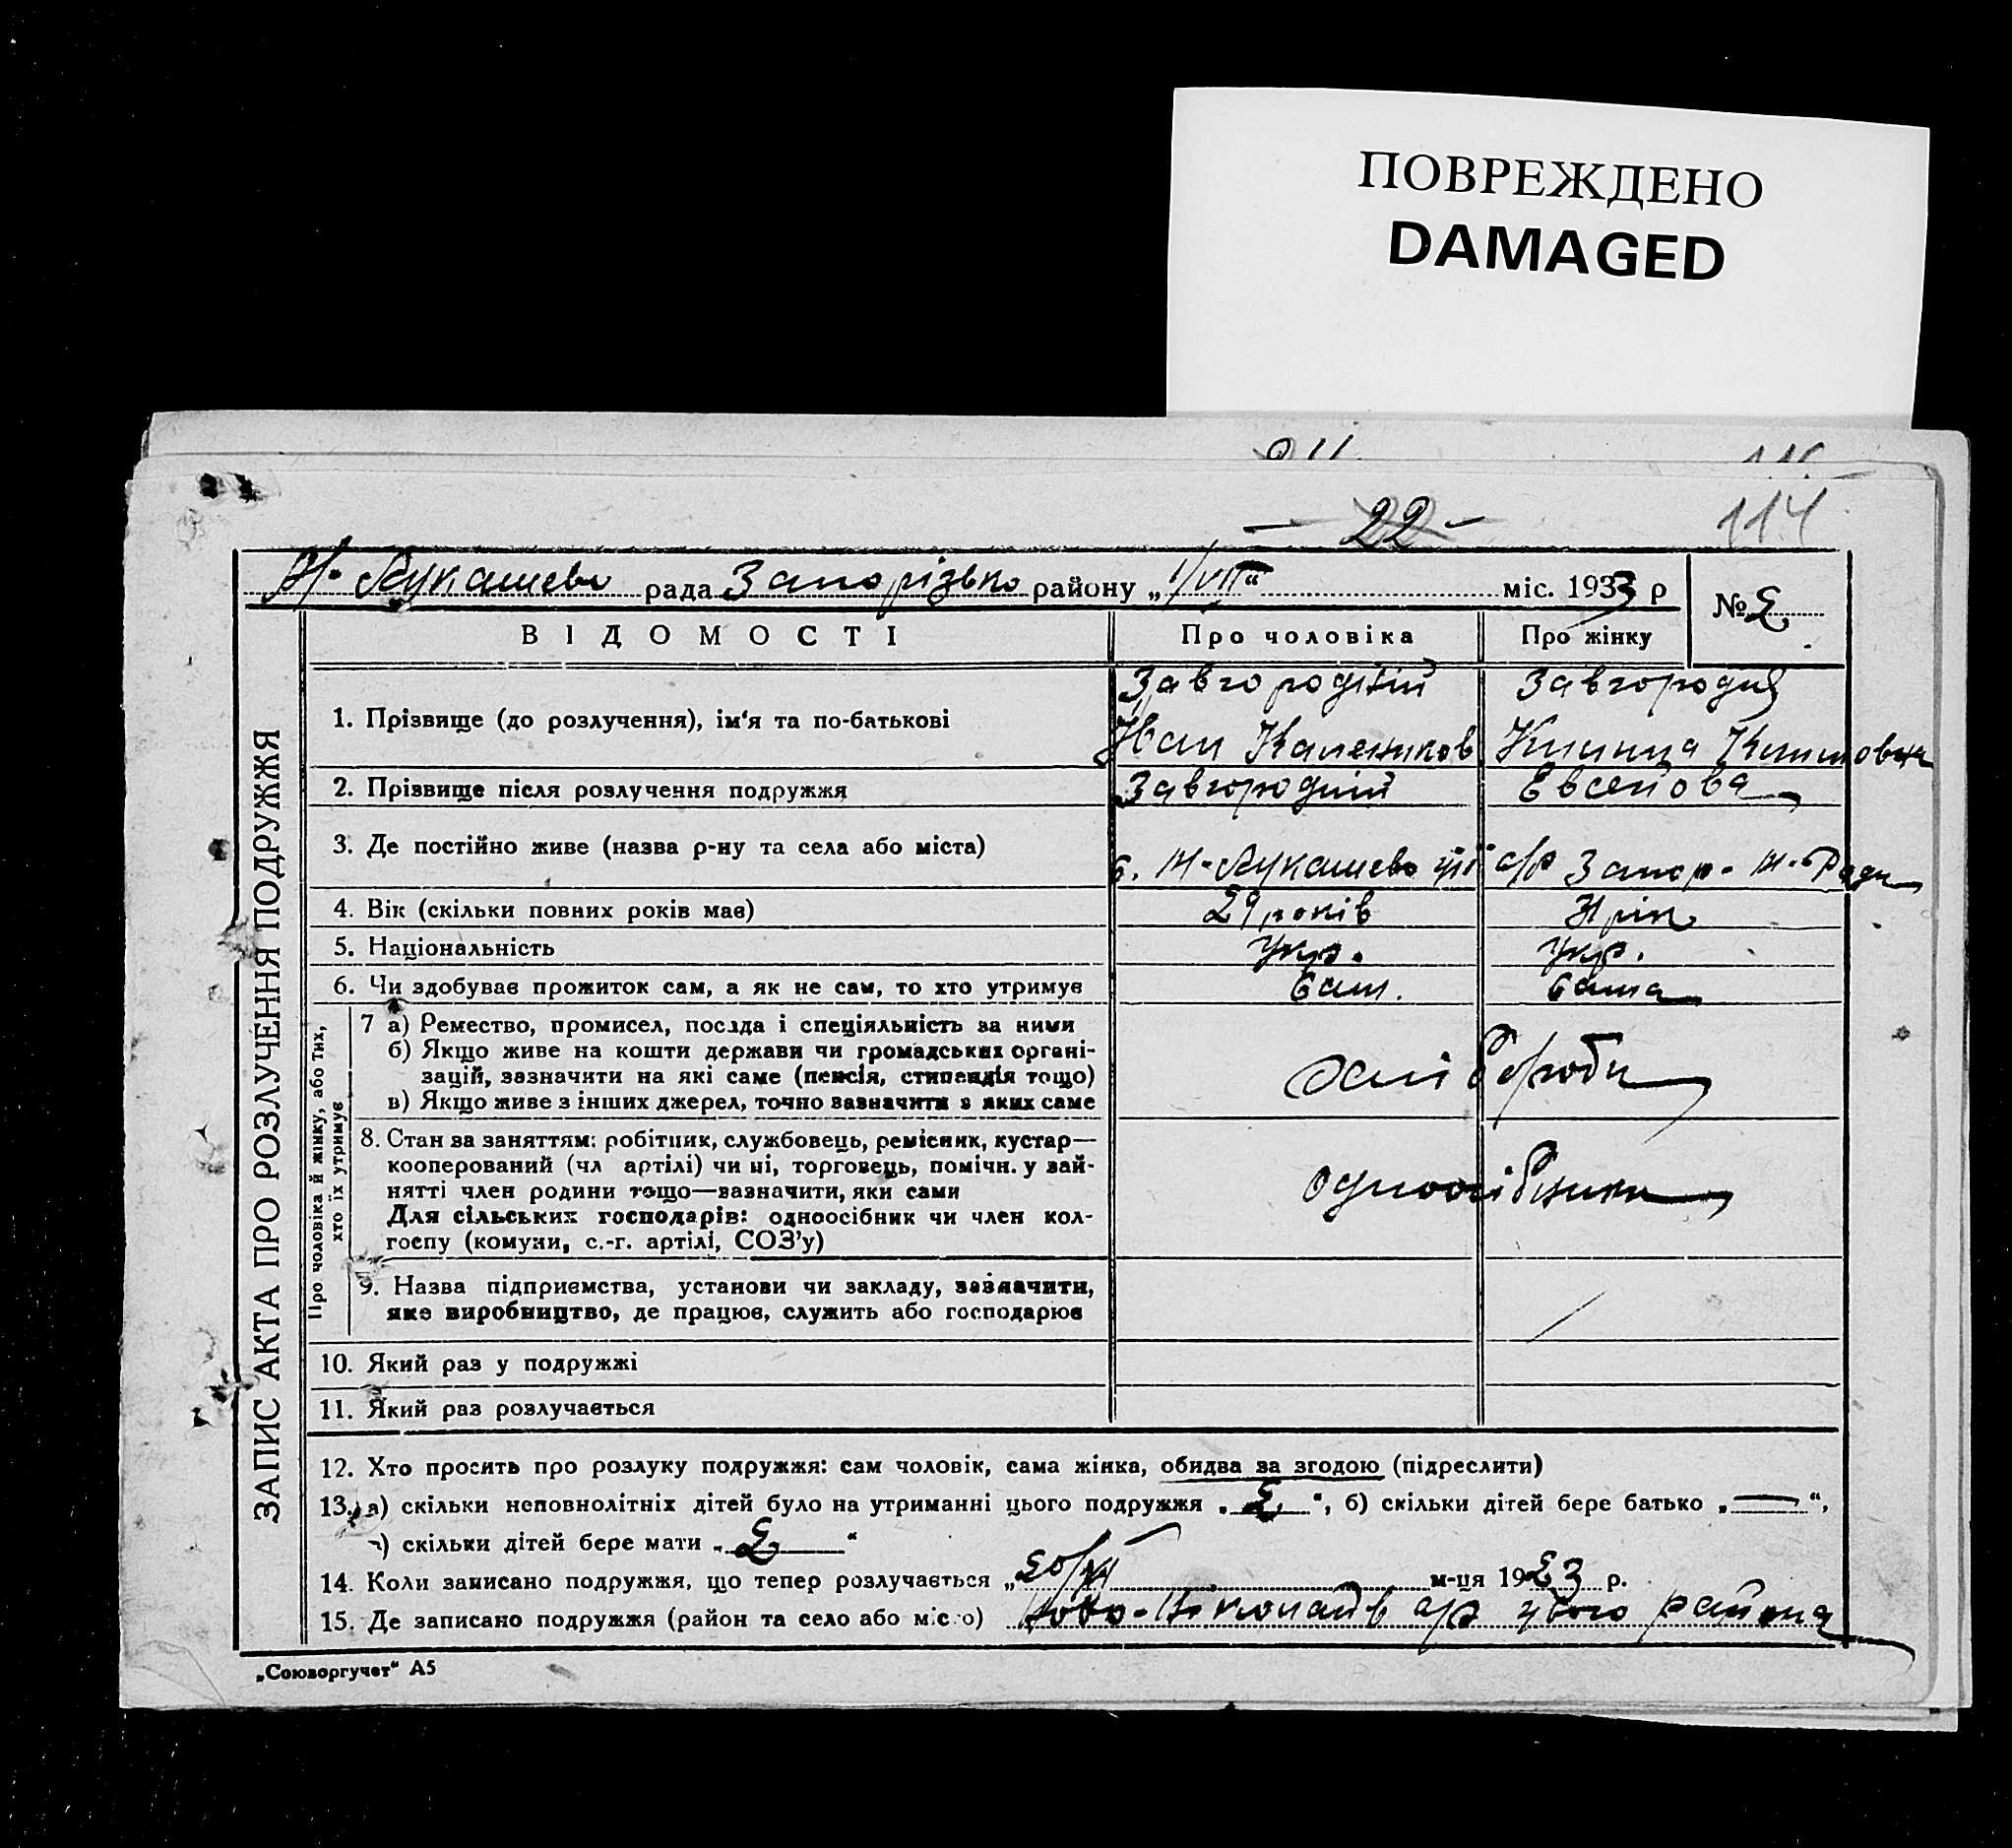 ПОВРЕЖДЕНО
DAMAGED
- 22 -
114
Н-Лукашево рада Запорізько району „1/VII“ міс. 1933 р
№ 2
ЗАПИС АКТА ПРО РОЗЛУЧЕННЯ ПОДРУЖЖЯ
ВІДОМОСТІ Про чоловіка Про жінку
1. Прізвище (до розлучення), ім'я та по-батькові Завгородній Завгородня
Іван Калеников
2. Прізвище після розлучення подружжя Завгородній Евсейова
3. Де постійно живе (назва р-ну та села або міста) с. Н-Лукашево с/р Запор. м. Ради
4. Вік (скільки повних років має) 29 років
5. Національність Укр. укр.
6. Чи здобуває прожиток сам, а як не сам, то хто утримує Сам. Сама
Про чоловіка й жінку, або тих, хто їх утримує
7 а) Ремество, промисел, посада і спеціяльність за ними
б) Якщо живе на кошти держави чи громадських органі-
зацій, зазначити на які саме (пенсія, стипендія тощо)
в) Якщо живе з інших джерел, точно зазначити з яких саме
хліборобы
8. Стан за заняттям: робітник, службовець, ремісник, кустар—
кооперований (чл артілі) чи ні, торговець, помічн. у зай-
нятті член родини тощо—вазначити, яки сами
Для сільських господарів: одноосібник чи член кол-
госпу (комуни, с.-г. артілі, СОЗ'у)
одноосібники
9. Назва підприємства, установи чи закладу, зазначити,
яке виробництво, де працює, служить або господарює
10. Який раз у подружжі
11. Який раз розлучається
12. Хто просить про розлуку подружжя: сам чоловік, сама жінка, обидва за згодою (підреслити)
13. а) скільки неповнолітніх дітей було на утриманні цього подружжя „2“, б) скільки дітей бере батько „—“,
в) скільки дітей бере мати „2“
14. Коли записано подружжя, що тепер розлучається „20/XI м-ця 1923 р.
15. Де записано подружжя (район та село або місто) Ново-Николаїв с/р цього района
„Союзоргучет“ А5